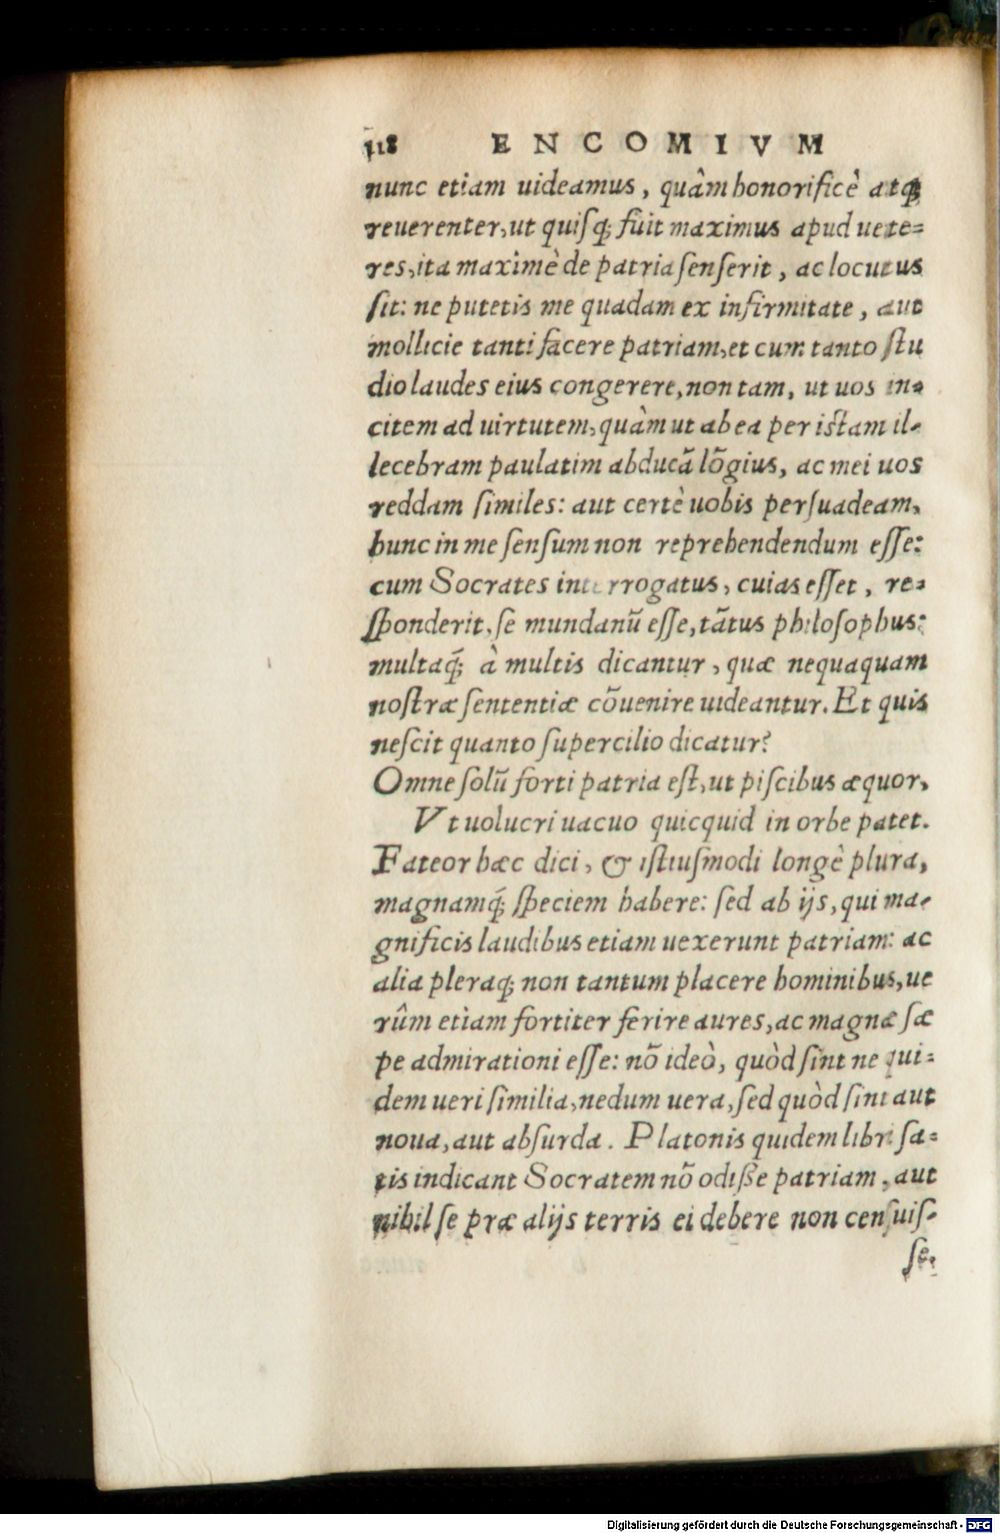 118 ENCOMIVM
nunc etiam uideamus, quàm honorificè atq́;
reuerenter, ut quiſq; fuit maximus apud uete=
res, ita maximè de patria ſenſerit, ac locutus
ſit: ne putetis me quadam ex infirmitate, aut
mollicie tanti facere patriam, et cum tanto ſtu
dio laudes eius congerere, non tam, ut uos in=
citem ad uirtutem, quàm ut ab ea per iſtam il=
lecebram paulatim abducã lõgius, ac mei uos
reddam ſimiles: aut certè uobis perſuadeam,
hunc in me ſenſum non reprehendendum eſſe:
cum Socrates interrogatus, cuias eſſet, re=
ſponderit, ſe mundanũ eſſe, tãtus philoſophus:
multaq́; à multis dicantur, quæ nequaquam
noſtræ ſententiæ cõuenire uideantur. Et quis
neſcit quanto ſupercilio dicatur?
Omne ſolũ forti patria eſt, ut piſcibus æquor,
Vt uolucri uacuo quicquid in orbe patet.
Fateor hæc dici, & iſtiuſmodi longè plura,
magnamq́; ſpeciem habere: ſed ab ijs, qui ma=
gnificis laudibus etiam uexerunt patriam: ac
alia pleraq; non tantum placere hominibus, ue
rûm etiam fortiter ferire aures, ac magnæ ſæ
pe admirationi eſſe: nõ ideò, quòd ſint ne qui=
dem ueri ſimilia, nedum uera, ſed quòd ſint aut
noua, aut abſurda. Platonis quidem libri ſa=
tis indicant Socratem nõ odiſſe patriam, aut
nihil ſe præ alijs terris ei debere non cenſuiſ=
ſe.
Digitalisierung gefördert durch die Deutsche Forschungsgemeinschaft - DFG